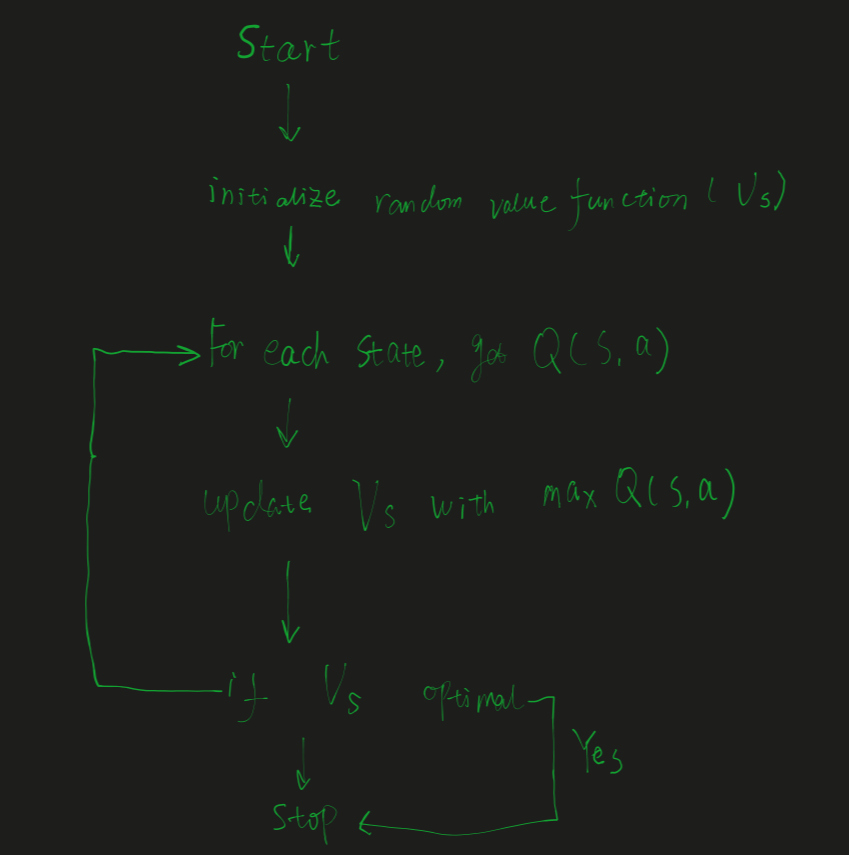 Start
initialize random value function ( Vs)
For each state, get Q(s,a)
update Vs with max Q(s,a)
if Vs optimal
Yes
Stop